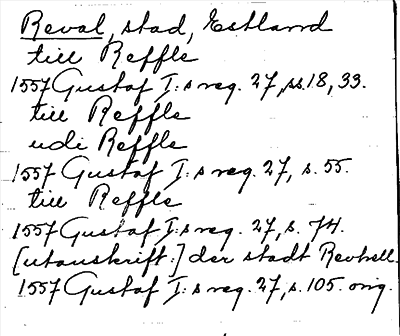 Reval, stad, Estland
till Reffle
1557 Gustaf I:s reg. 27, ss. 18, 33.
till Reffle
udi Reffle
1557 Gustaf I:s reg. 27, s. 55.
till Reffle
1557 Gustaf I:s reg. 27, s. 74.
[utanskrift:] der stadt Revhell.
1557 Gustaf I:s reg. 27, s. 105. orig.